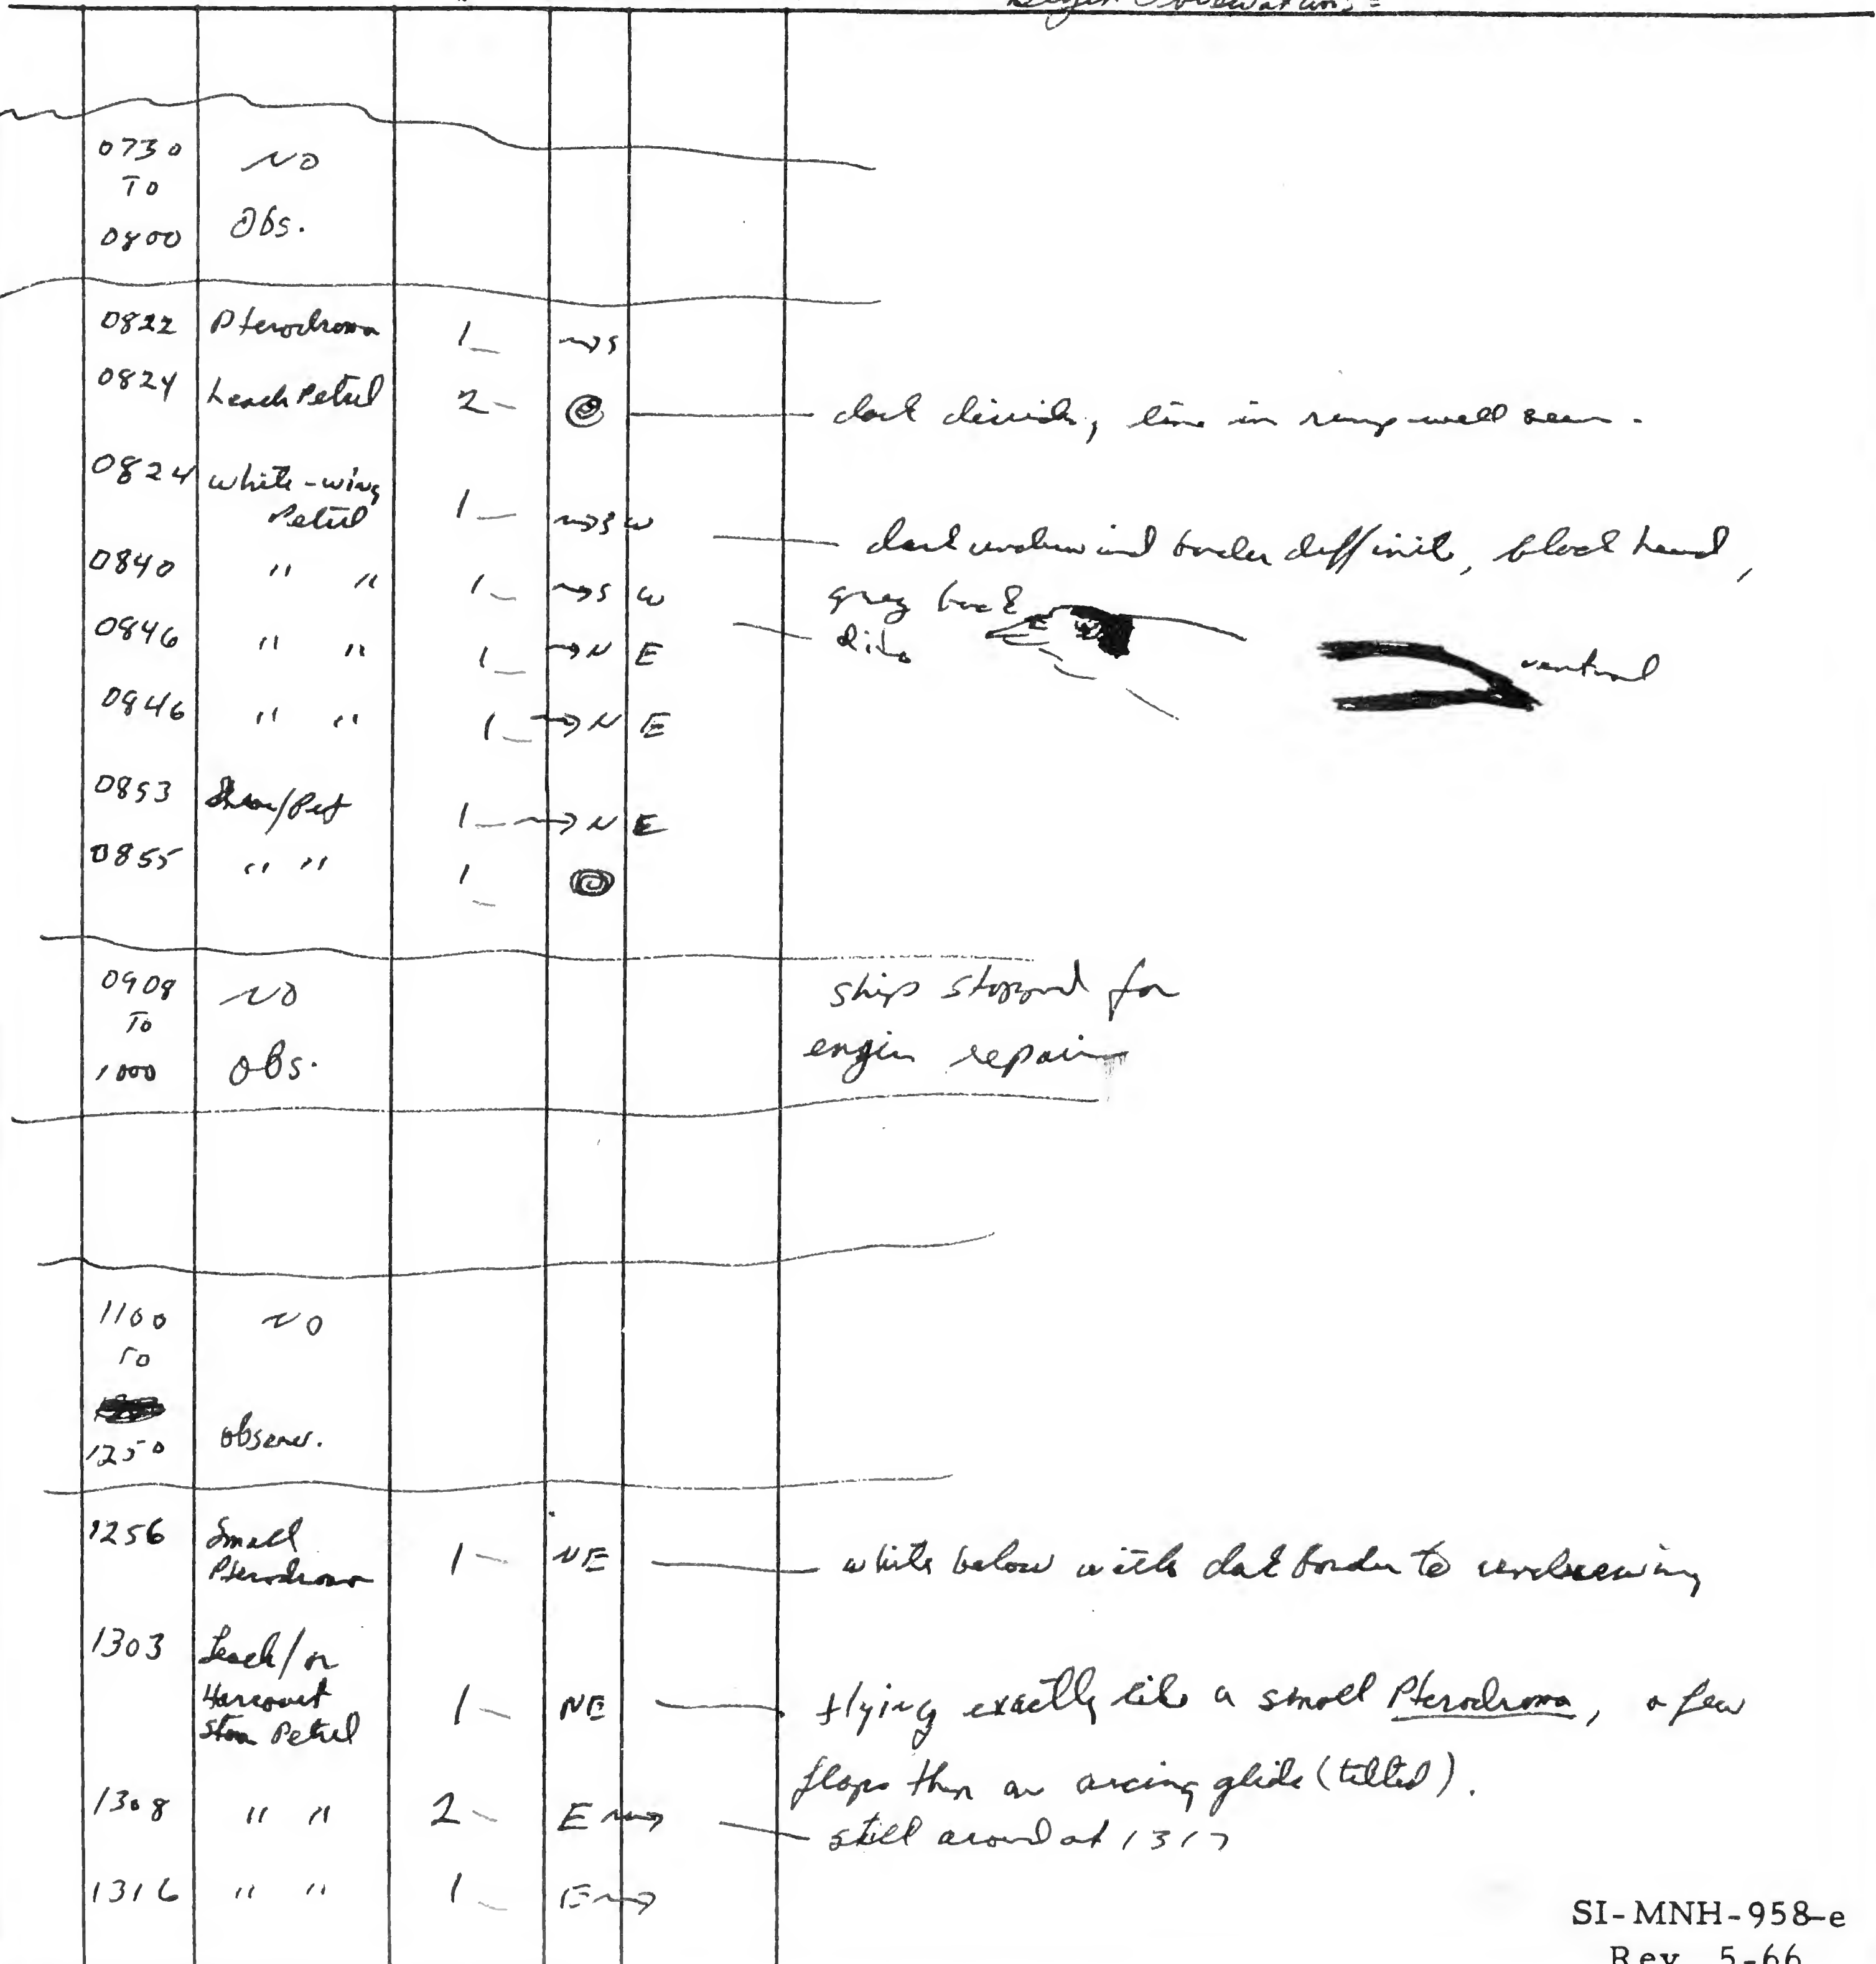 Begin Observations =
0730 NO
To
0800 Obs.
0822 Pterodroma 1 → S
0824 Leach Petrel 2 dark dividing line in rump well seen.
0824 white-wing
Petrel 1 → S W dark underwing border deffinite, black head,
0840 " " 1 → S W grey back
0846 " " 1 → N E dito
ventral
0846 " " 1 → N E
0853 Shear/Pet 1 → N E
0855 " " 1
0908 NO ships stopped for
To
1000 obs. engin repair
1100 NO
To
1250 observ.
1256 Small
Pterodroma 1 NE white below with dark border to underwing
1303 Leach/or
Harcourt 1 NE flying exactly like a small Pterodroma, a few
storm Petrel
flaps then an arcing glide (tilted).
1308 " " 2 E → still around at 1317
1316 " " 1 E →
SI-MNH-958-e
Rev. 5-66